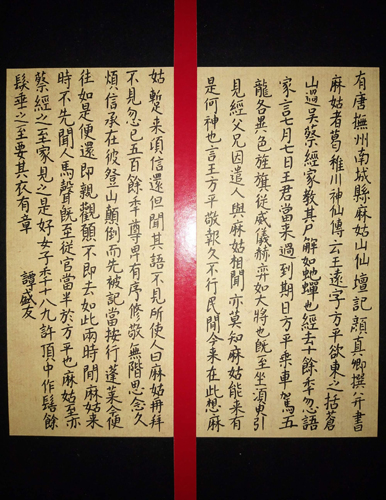 有唐撫州南城縣麻姑山仙壇記顏真卿撰并書
麻姑者葛稚川神仙傳云王遠字方平欲東之括蒼
山過吳蔡經家教其尸解如虵蟬也經去十餘秊忽語
家言七月七日王君當来過到期日方平乘車駕五
龍各異色旌旗從威儀赫弈如大將也既至坐須臾引
見經父兄因遣人與麻姑相聞亦莫知麻姑能来有
是何神也言王方平敬報久不行民間今来在此想麻
姑蹔来頃信還但聞其語不見所使人曰麻姑再拜
不見忽已五百餘秊尊卑有序修敬無階思念久
煩信承在彼登山顛倒而先被記當按行蓬萊今便
往如是便還即親觀願不即去如此兩時間麻姑来
時不先聞人馬聲既至從官當半於方平也麻姑至亦
蔡經之至家見之是好女子秊十八九許頂中作髻餘
髮垂之至要其衣有章